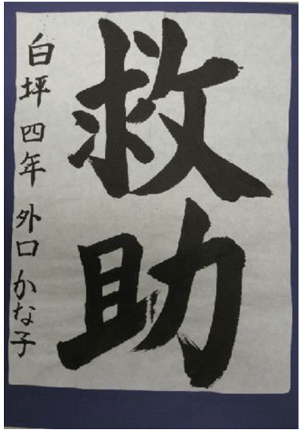 救助
白坪四年 外口かな子